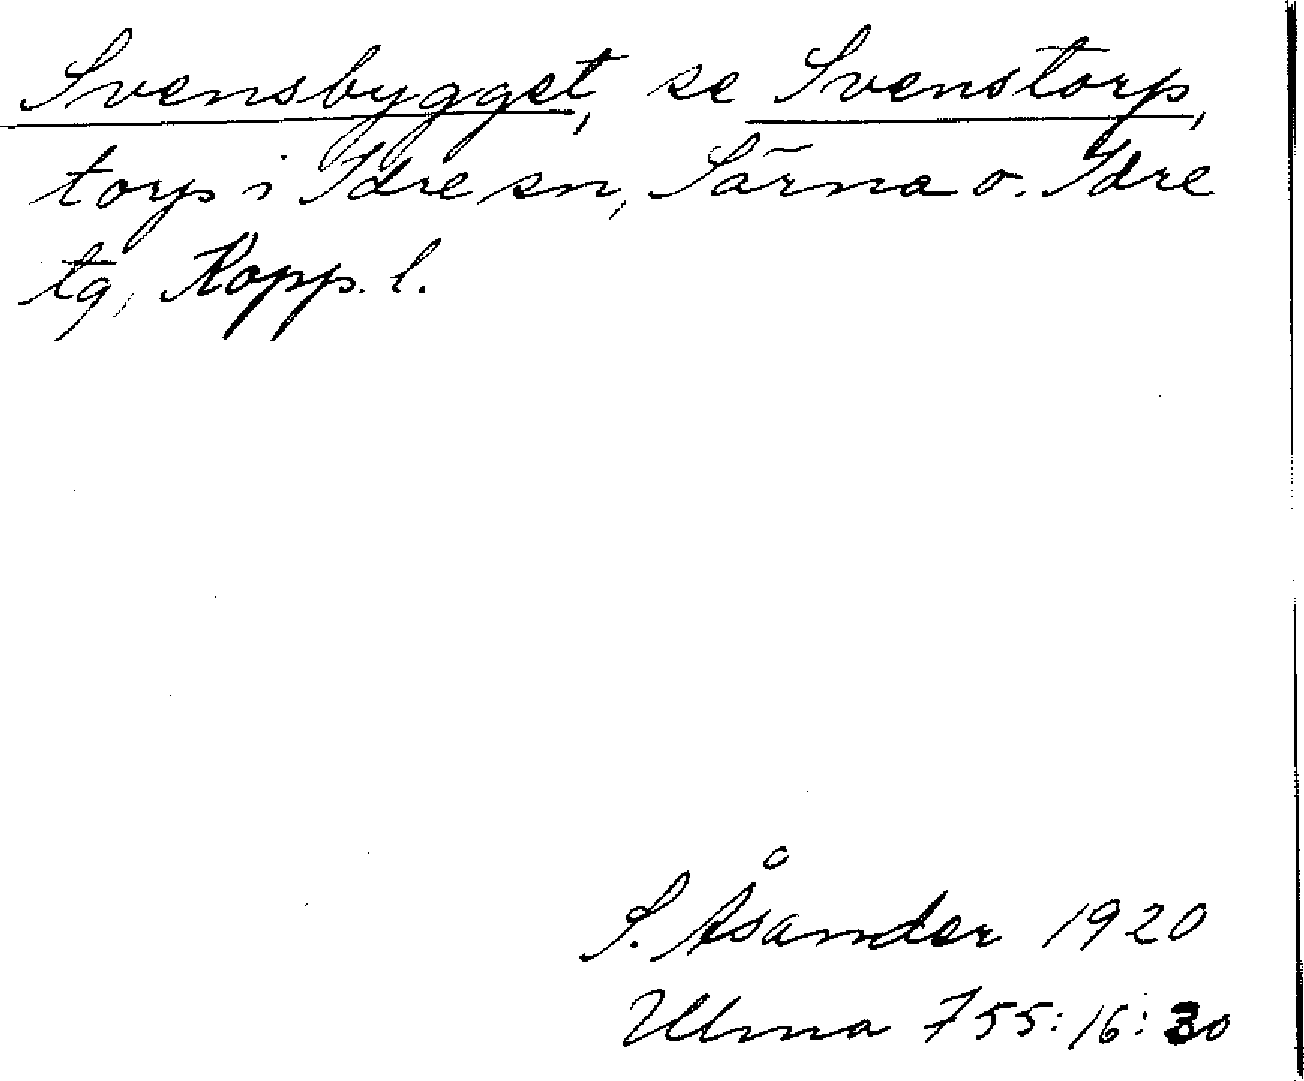 Svensbygget, se Svenstorp,
torp i Idre sn, Särna o. Idre
tg, Kopp. l.
S. Åsander 1920
Ulma 755:16:30